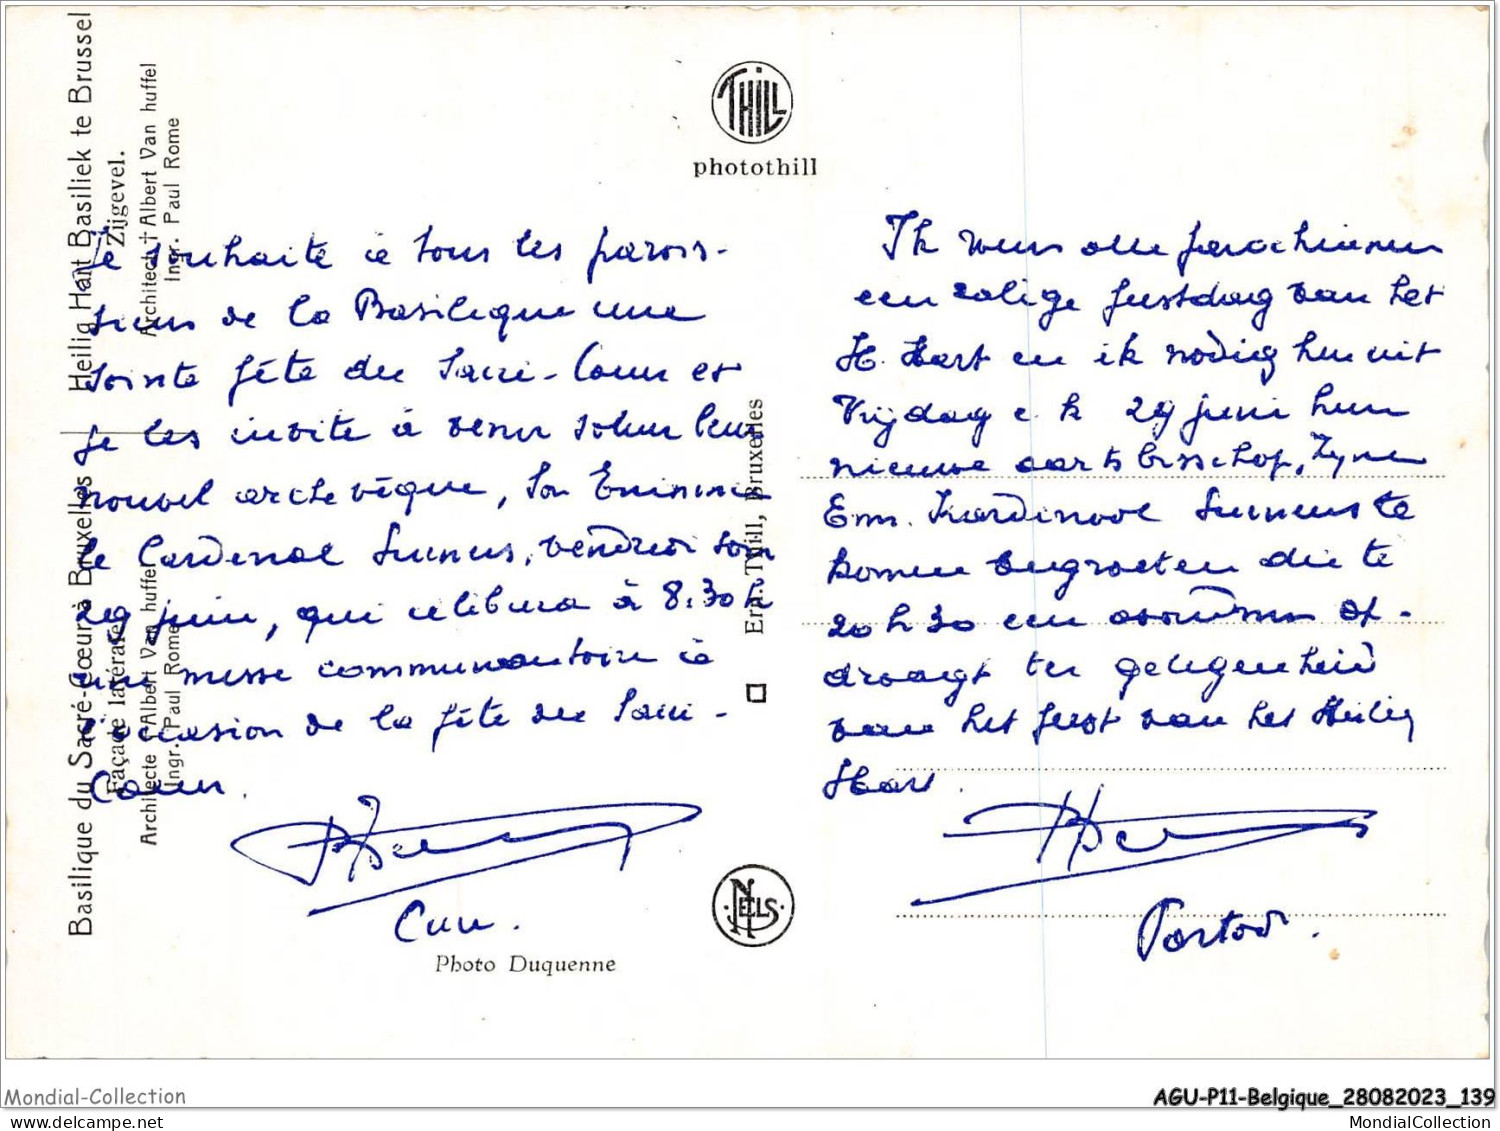 Heilig Hart Basiliek te Brussel
Zijgevel.
Architect † Albert Van huffel
Ingr. Paul Rome
Basilique du Sacré-Cœur à Bruxelles
Façade latérale.
Architecte † Albert Van huffel
Ingr. Paul Rome
THILL
photothill
Je souhaite à tous les parois-
siens de la Basilique une
Sainte fête du Sacré-Coeur et
je les invite à venir saluer leur
nouvel archevêque, Son Eminence
le Cardinal Suenens, vendredi soir
29 juin, qui célèbrera à 8.30 h
une messe communautaire à
l'occasion de la fête du Sacré-
Coeur.
Curé.
Photo Duquenne
Ern. Thill, Bruxelles
NELS
Ik wens alle parochianen
een zalige feestdag van het
H. Hart en ik nodig hen uit
Vrijdag e.k 29 juni hun
nieuwe aartsbisschop, Zijne
Em. Kardinaal Suenens te
komen begroeten die te
20 h 30 een avondmis op-
draagt ter gelegenheid
van het feest van het Heilig
Hart.
Pastoor.
Mondial-Collection
AGU-P11-Belgique_28082023_139
MondialCollection